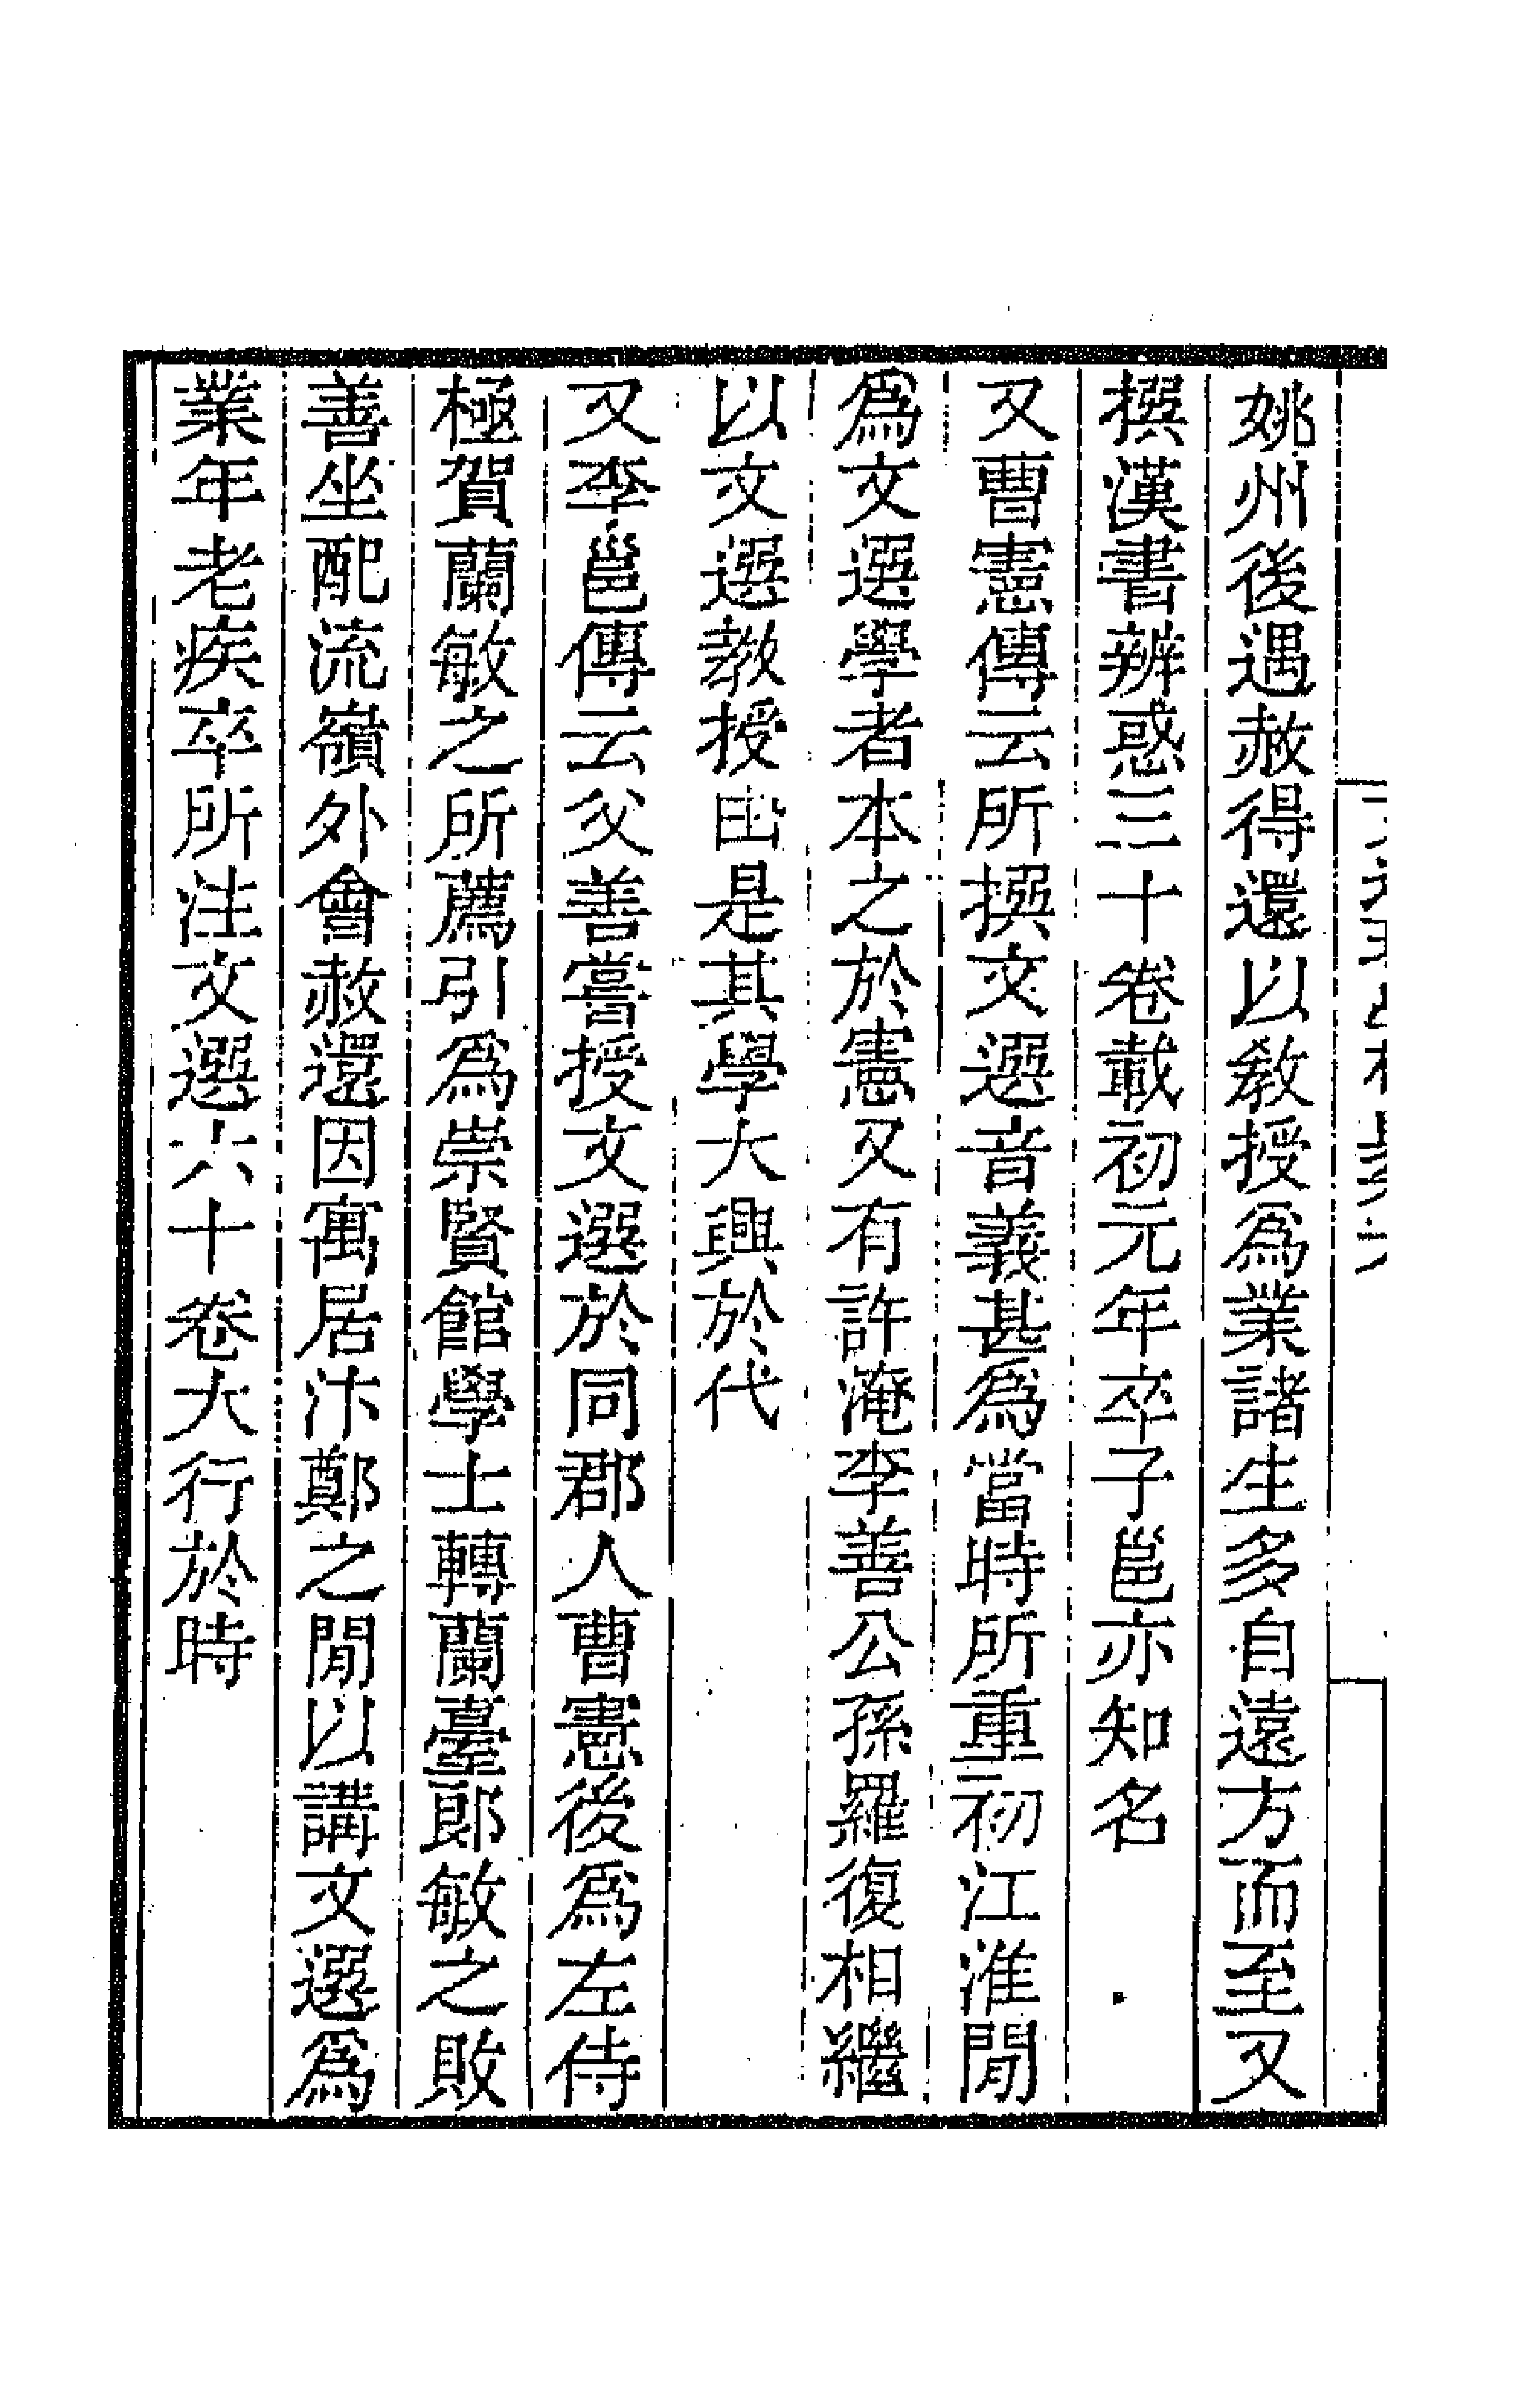 姚州後遇赦得還以教授爲業諸生多自遠方而至又
撰漢書辨惑三十卷載初元年卒子邕亦知名
又曹憲傳云所撰文選音義甚爲當時所重初江淮閒
爲文選學者本之於憲又有許淹李善公孫羅復相繼
以文選教授由是其學大興於代
又李邕傳云父善嘗授文選於同郡人曹憲後爲左侍
極賀蘭敏之所薦引爲崇賢館學士轉蘭臺郎敏之敗
善坐配流嶺外會赦還因寓居汴鄭之閒以講文選爲
業年老疾卒所注文選六十卷大行於時